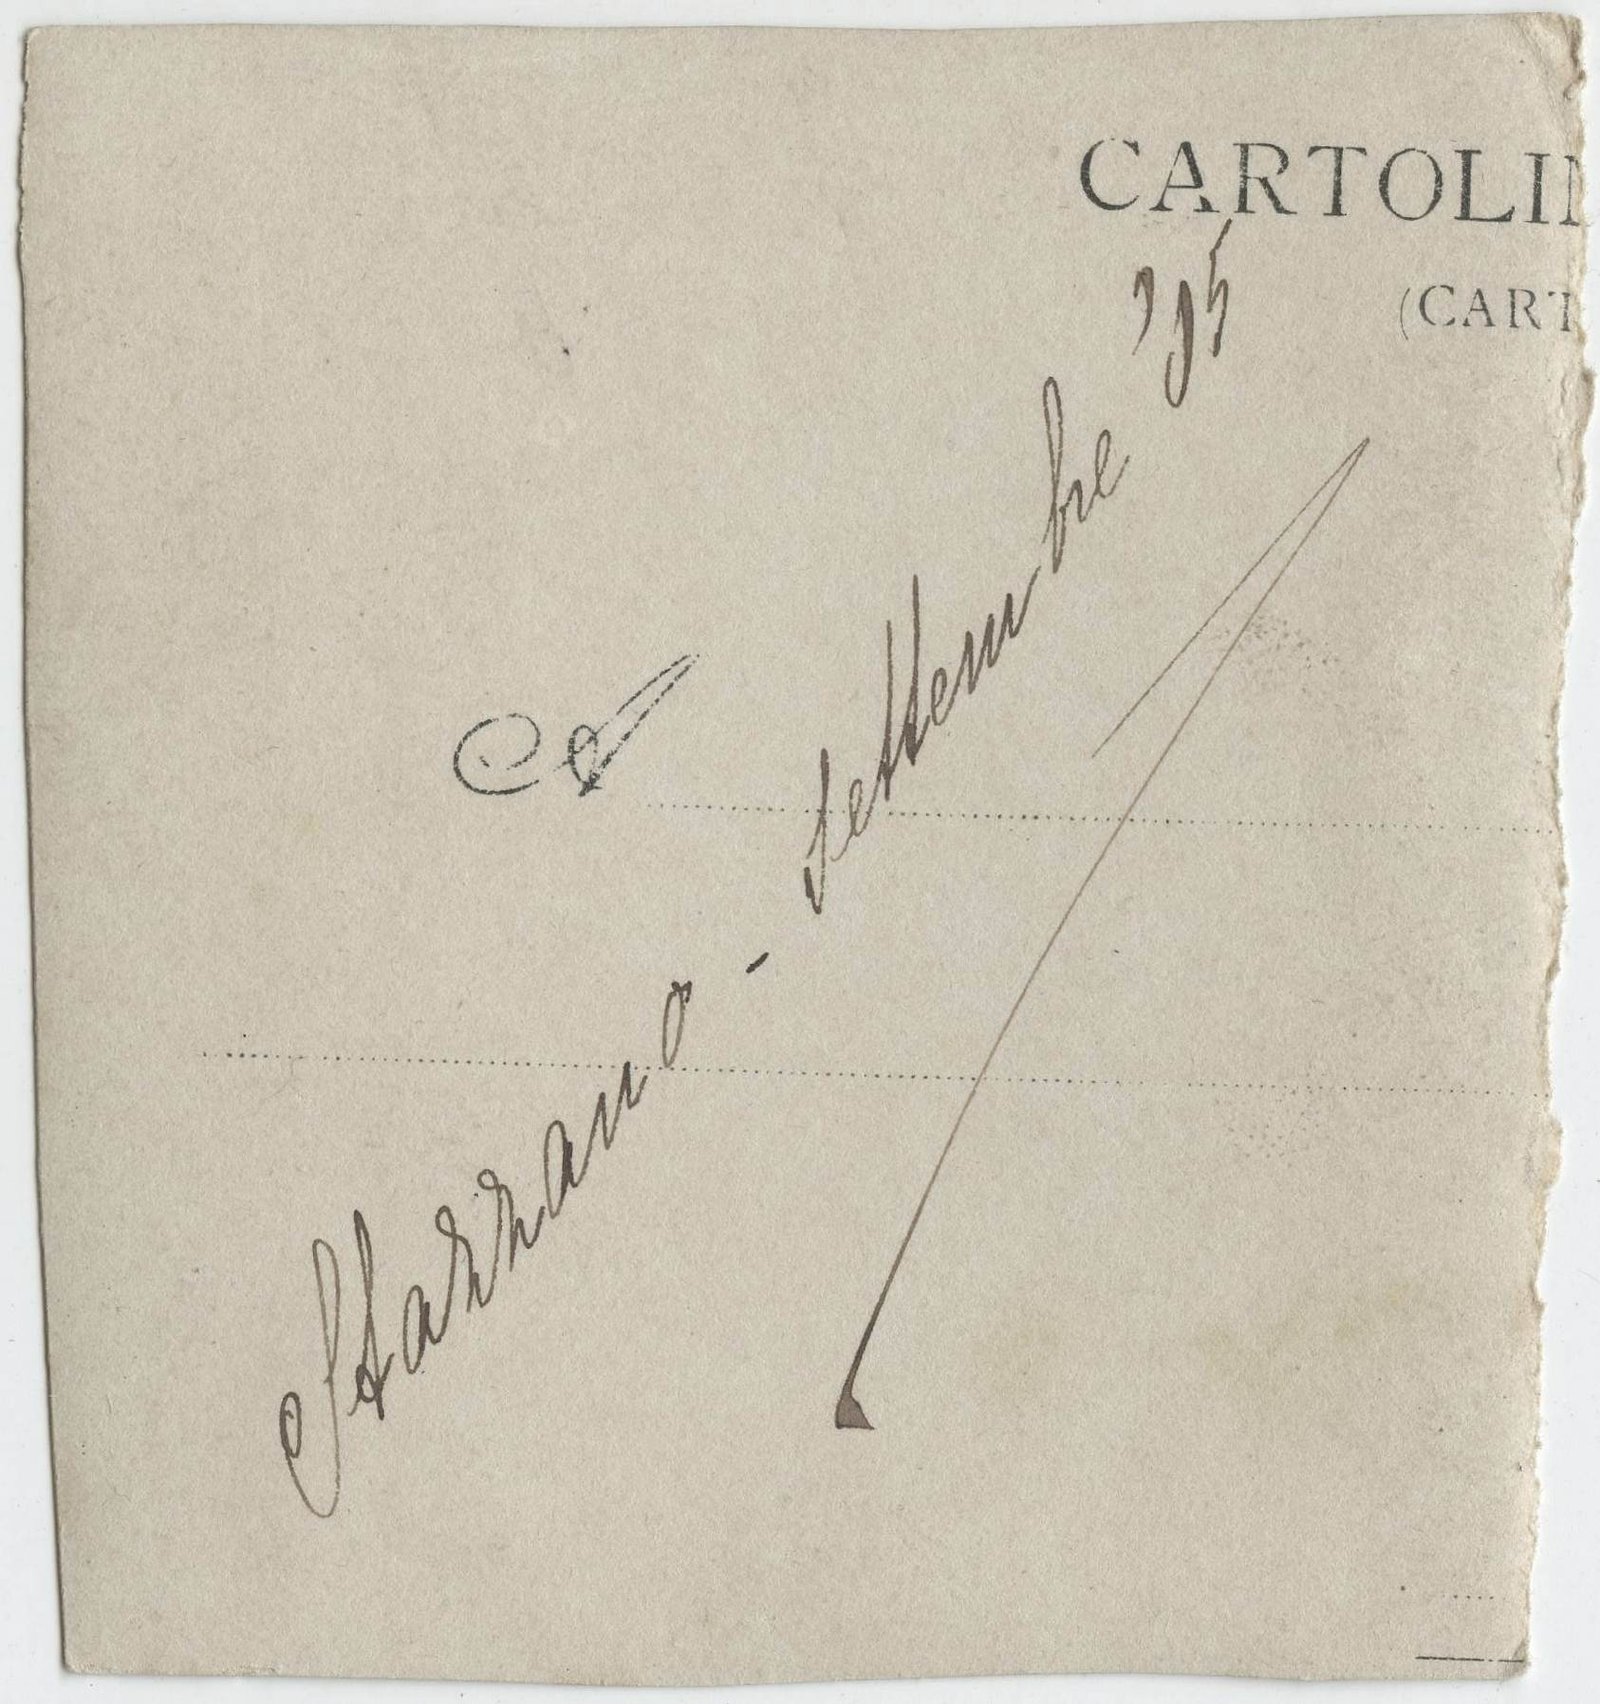 CARTOLIN
(CART
A
Starrano - settembre '905